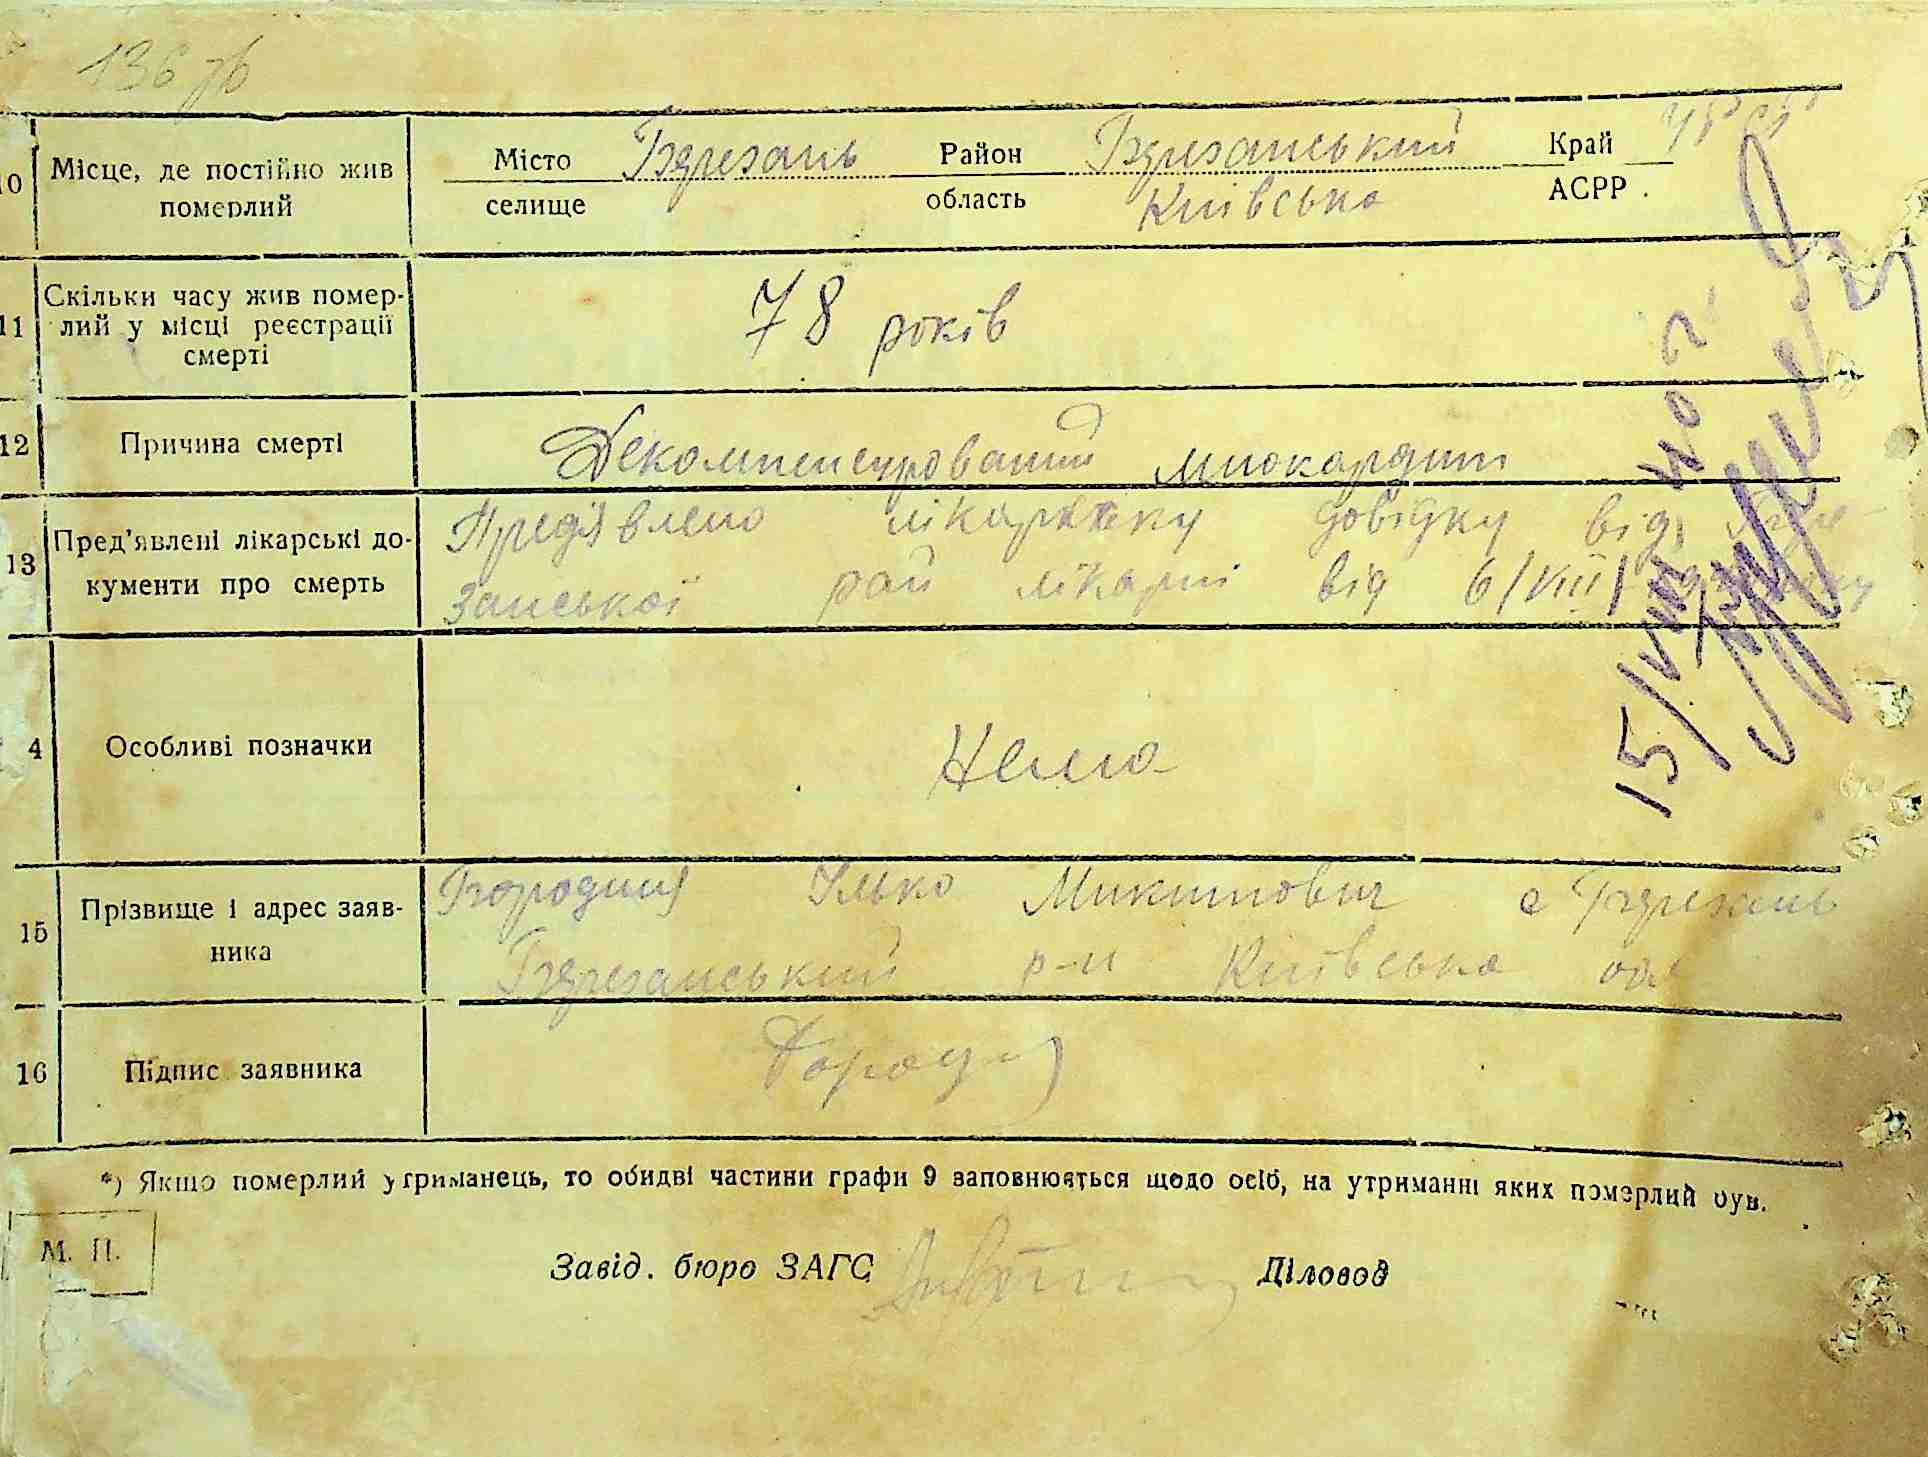 136 зв
10 Місце, де постійно жив померлий
Місто Березань Район Березанський Край УРСР
селище область Київська АСРР
11 Скільки часу жив помер-
лий у місці реєстрації
смерті
78 років
12 Причина смерті Декомпенсирований миокардит
13 Пред’явлені лікарські до-
кументи про смерть
Пред'явлено лікарську довідку від Бере-
занської рай лікарні від 6/VIII
4 Особливі позначки Нема
15 Прізвище і адрес заяв-
ника
Бородиня Улько Микитович с Березань
Березанський р-н Київська обл
16 Підпис заявника
15/VIII
*) Якщо померлий утриманець, то обидві частини графи 9 заповнюється щодо осіб, на утриманні яких померлий був.
М. П.
Завід. бюро ЗАГС Діловод